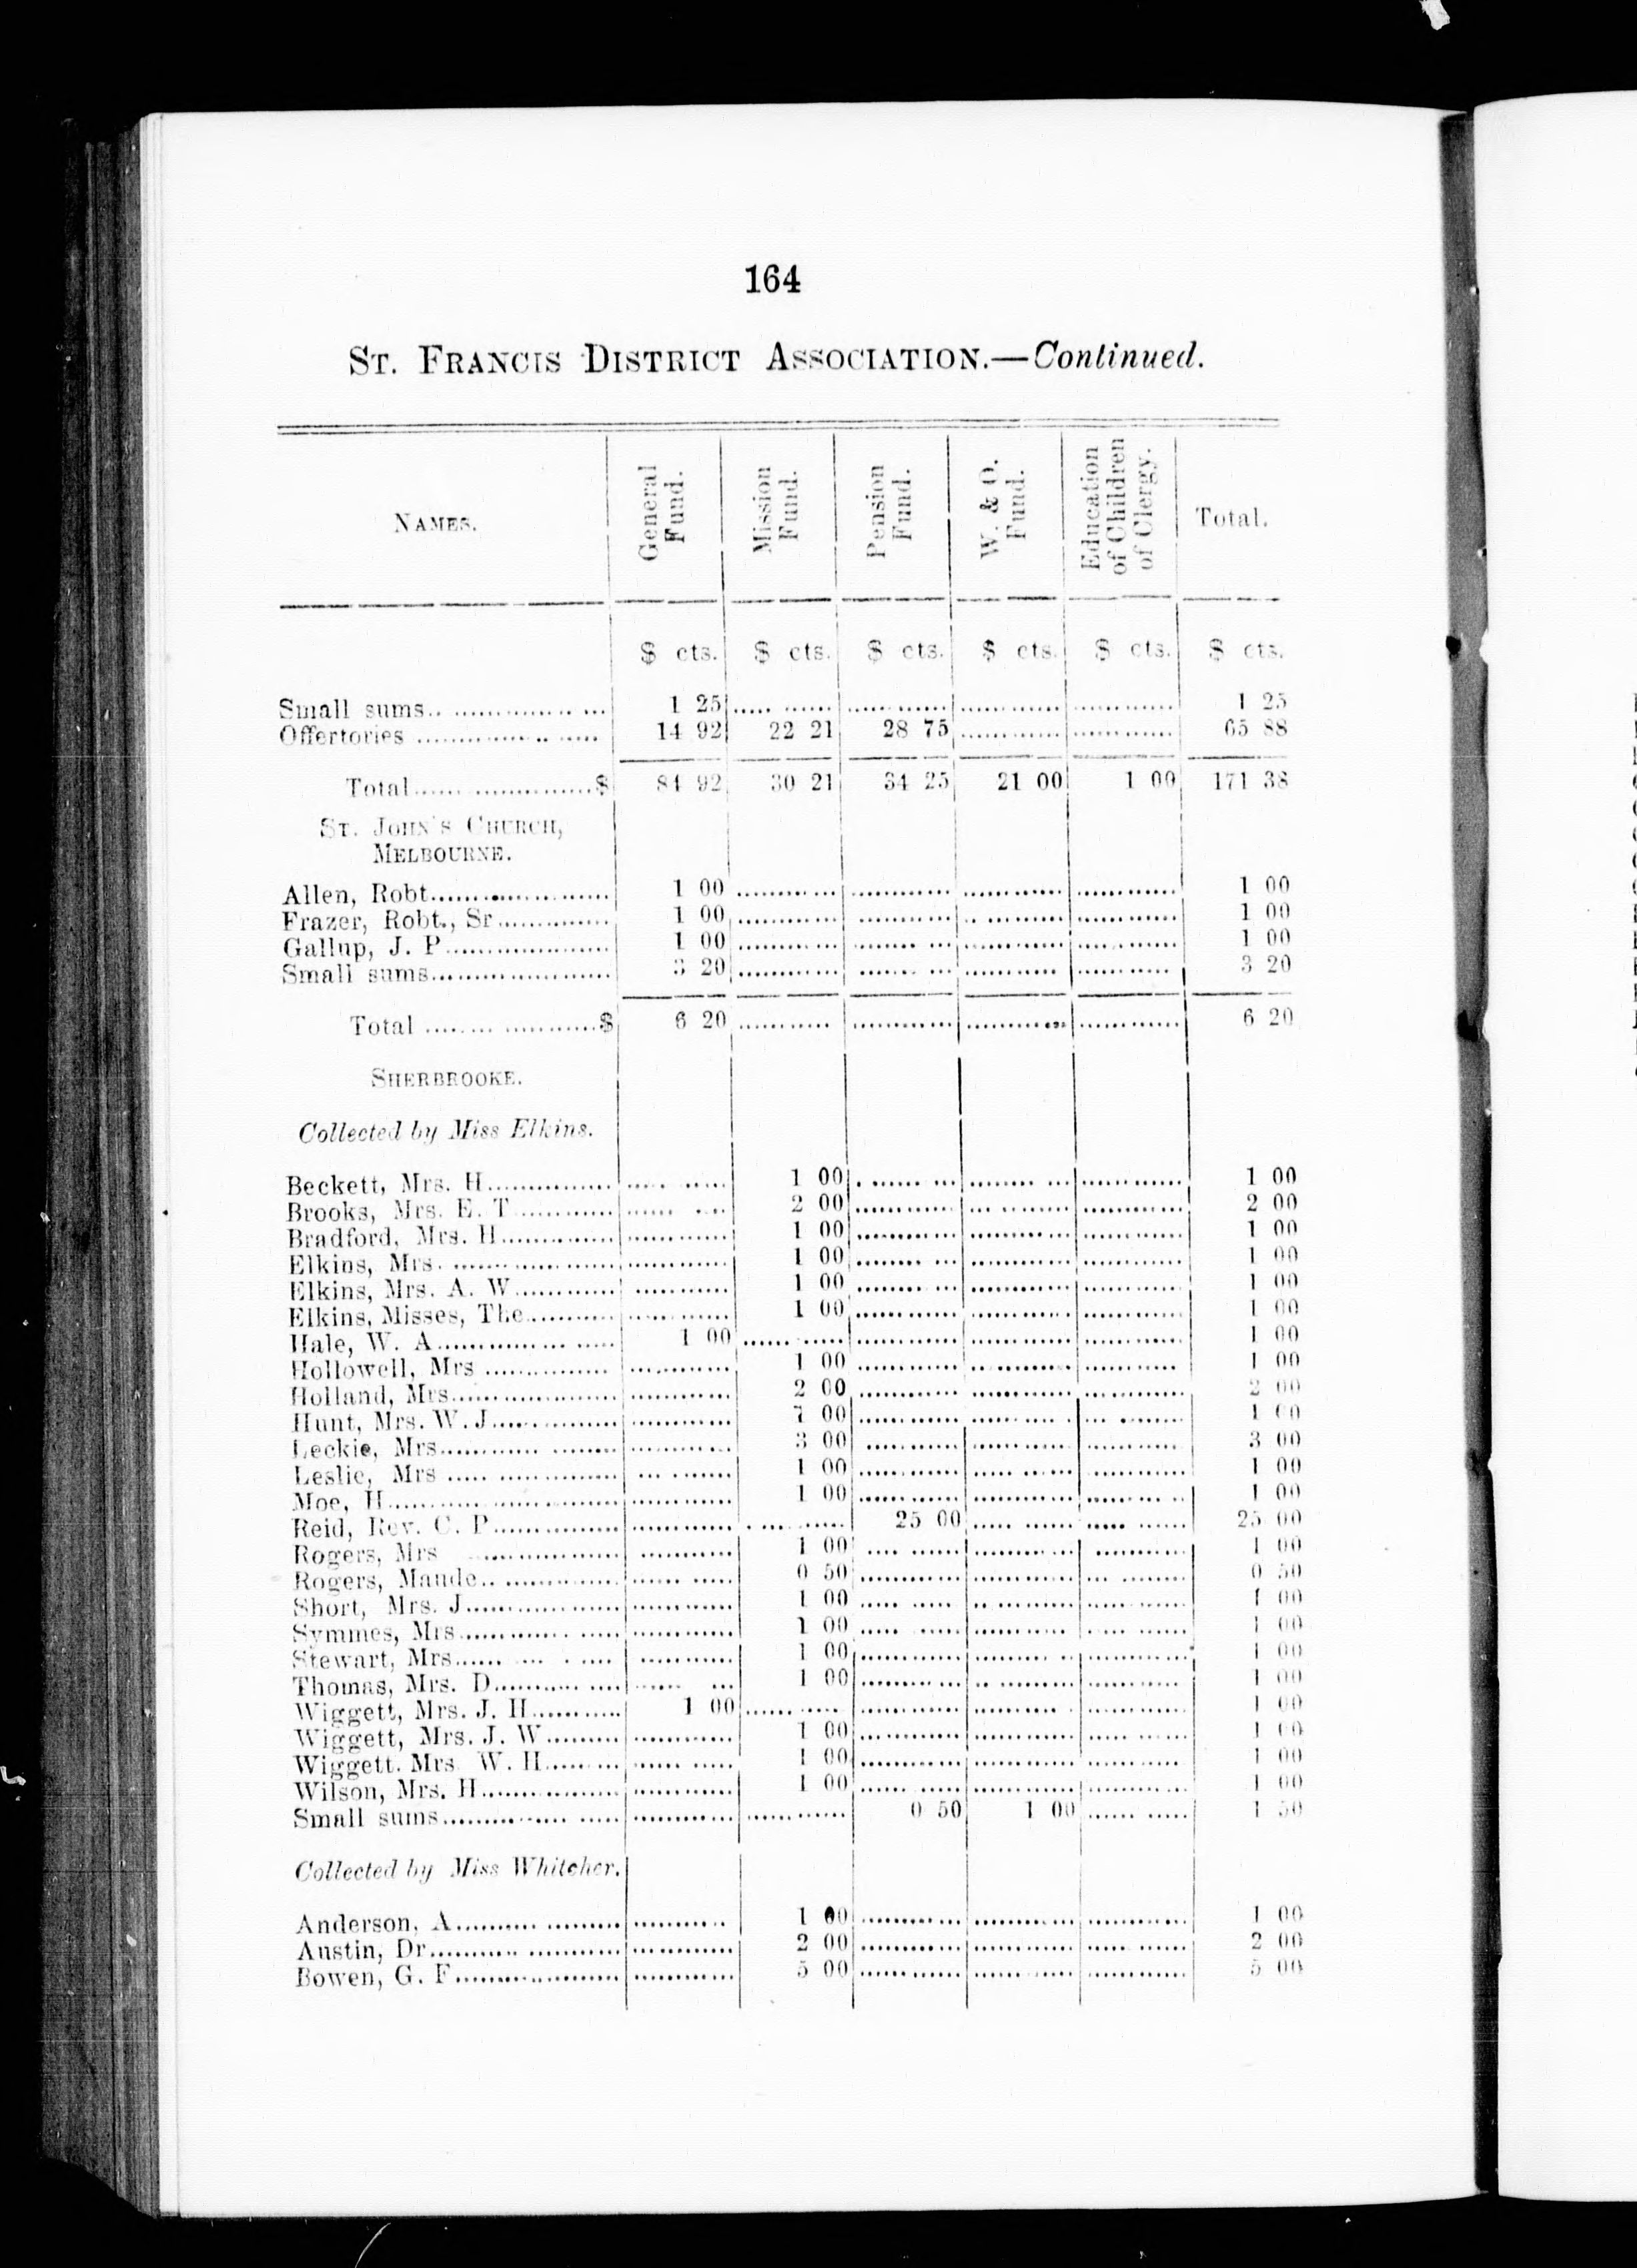 164
St. Francis District Association.—Continued.
Names. General Fund. Mission Fund. Pension Fund. W. & O. Fund. Education of Children of Clergy. Total.
$ cts. $ cts. $ cts. $ cts. $ cts. $ cts.
Small sums 1 25 1 25
Offertories 14 92 22 21 28 75 65 88
Total $ 84 92 30 21 34 25 21 00 1 00 171 38
St. John's Church,
Melbourne.
Allen, Robt. 1 00 1 00
Frazer, Robt., Sr 1 00 1 00
Gallup, J. P 1 00 1 00
Small sums 3 20 3 20
Total $ 6 20 6 20
Sherbrooke.
Collected by Miss Elkins.
Beckett, Mrs. H 1 00 1 00
Brooks, Mrs. E. T 2 00 2 00
Bradford, Mrs. H 1 00 1 00
Elkins, Mrs. 1 00 1 00
Elkins, Mrs. A. W 1 00 1 00
Elkins, Misses, The 1 00 1 00
Hale, W. A 1 00 1 00
Hollowell, Mrs 1 00 1 00
Holland, Mrs 2 00 2 00
Hunt, Mrs. W. J 1 00 1 00
Leckie, Mrs 3 00 3 00
Leslie, Mrs 1 00 1 00
Moe, H 1 00 1 00
Reid, Rev. C. P 25 00 25 00
Rogers, Mrs 1 00 1 00
Rogers, Maude 0 50 0 50
Short, Mrs. J 1 00 1 00
Symmes, Mrs 1 00 1 00
Stewart, Mrs 1 00 1 00
Thomas, Mrs. D 1 00 1 00
Wiggett, Mrs. J. H 1 00 1 00
Wiggett, Mrs. J. W 1 00 1 00
Wiggett. Mrs W. H 1 00 1 00
Wilson, Mrs. H 1 00 1 00
Small sums 0 50 1 00 1 50
Collected by Miss Whitcher.
Anderson, A 1 00 1 00
Austin, Dr 2 00 2 00
Bowen, G. F 5 00 5 00